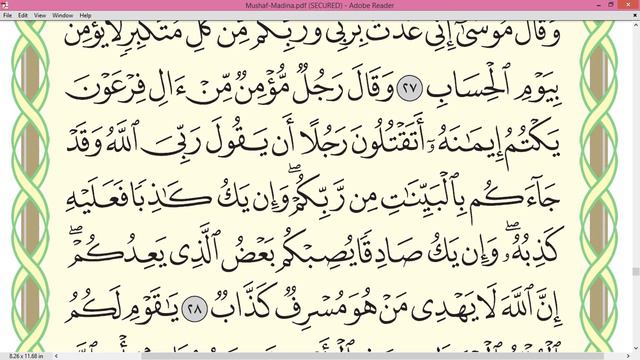 Mushaf-Madina.pdf (SECURED) - Adobe Reader
File Edit View Window Help
وَقَالَ مُوسَىٰٓ إِنِّي عُذۡتُ بِرَبِّي وَرَبِّكُم مِّن كُلِّ مُتَكَبِّرٖ لَّا يُؤۡمِنُ
بِيَوۡمِ ٱلۡحِسَابِ ٢٧ وَقَالَ رَجُلٞ مُّؤۡمِنٞ مِّنۡ ءَالِ فِرۡعَوۡنَ
يَكۡتُمُ إِيمَٰنَهُۥٓ أَتَقۡتُلُونَ رَجُلًا أَن يَقُولَ رَبِّيَ ٱللَّهُ وَقَدۡ
جَآءَكُم بِٱلۡبَيِّنَٰتِ مِن رَّبِّكُمۡۖ وَإِن يَكُ كَٰذِبٗا فَعَلَيۡهِ
كَذِبُهُۥۖ وَإِن يَكُ صَادِقٗا يُصِبۡكُم بَعۡضُ ٱلَّذِي يَعِدُكُمۡۖ
إِنَّ ٱللَّهَ لَا يَهۡدِي مَنۡ هُوَ مُسۡرِفٞ كَذَّابٞ ٢٨ يَٰقَوۡمِ لَكُمُ
8.26 x 11.68 in